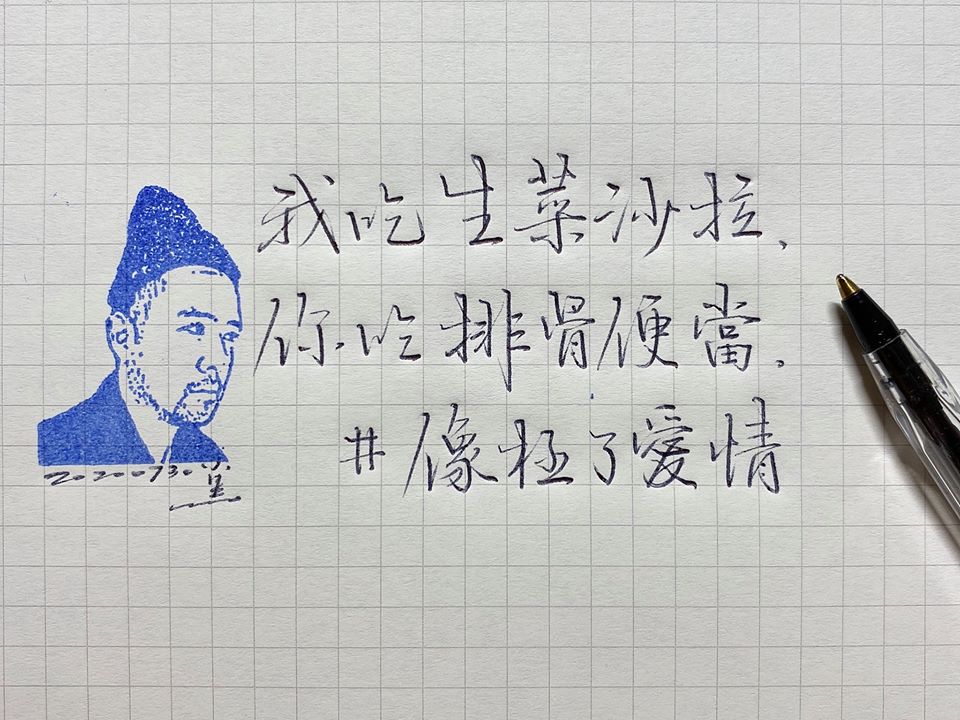 我吃生菜沙拉、
你吃排骨便當、
#像極了愛情